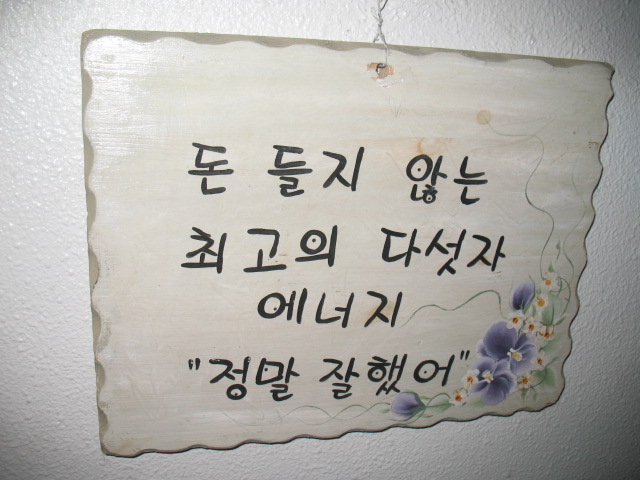 돈 들지 않는
최고의 다섯자
에너지
"정말 잘했어"